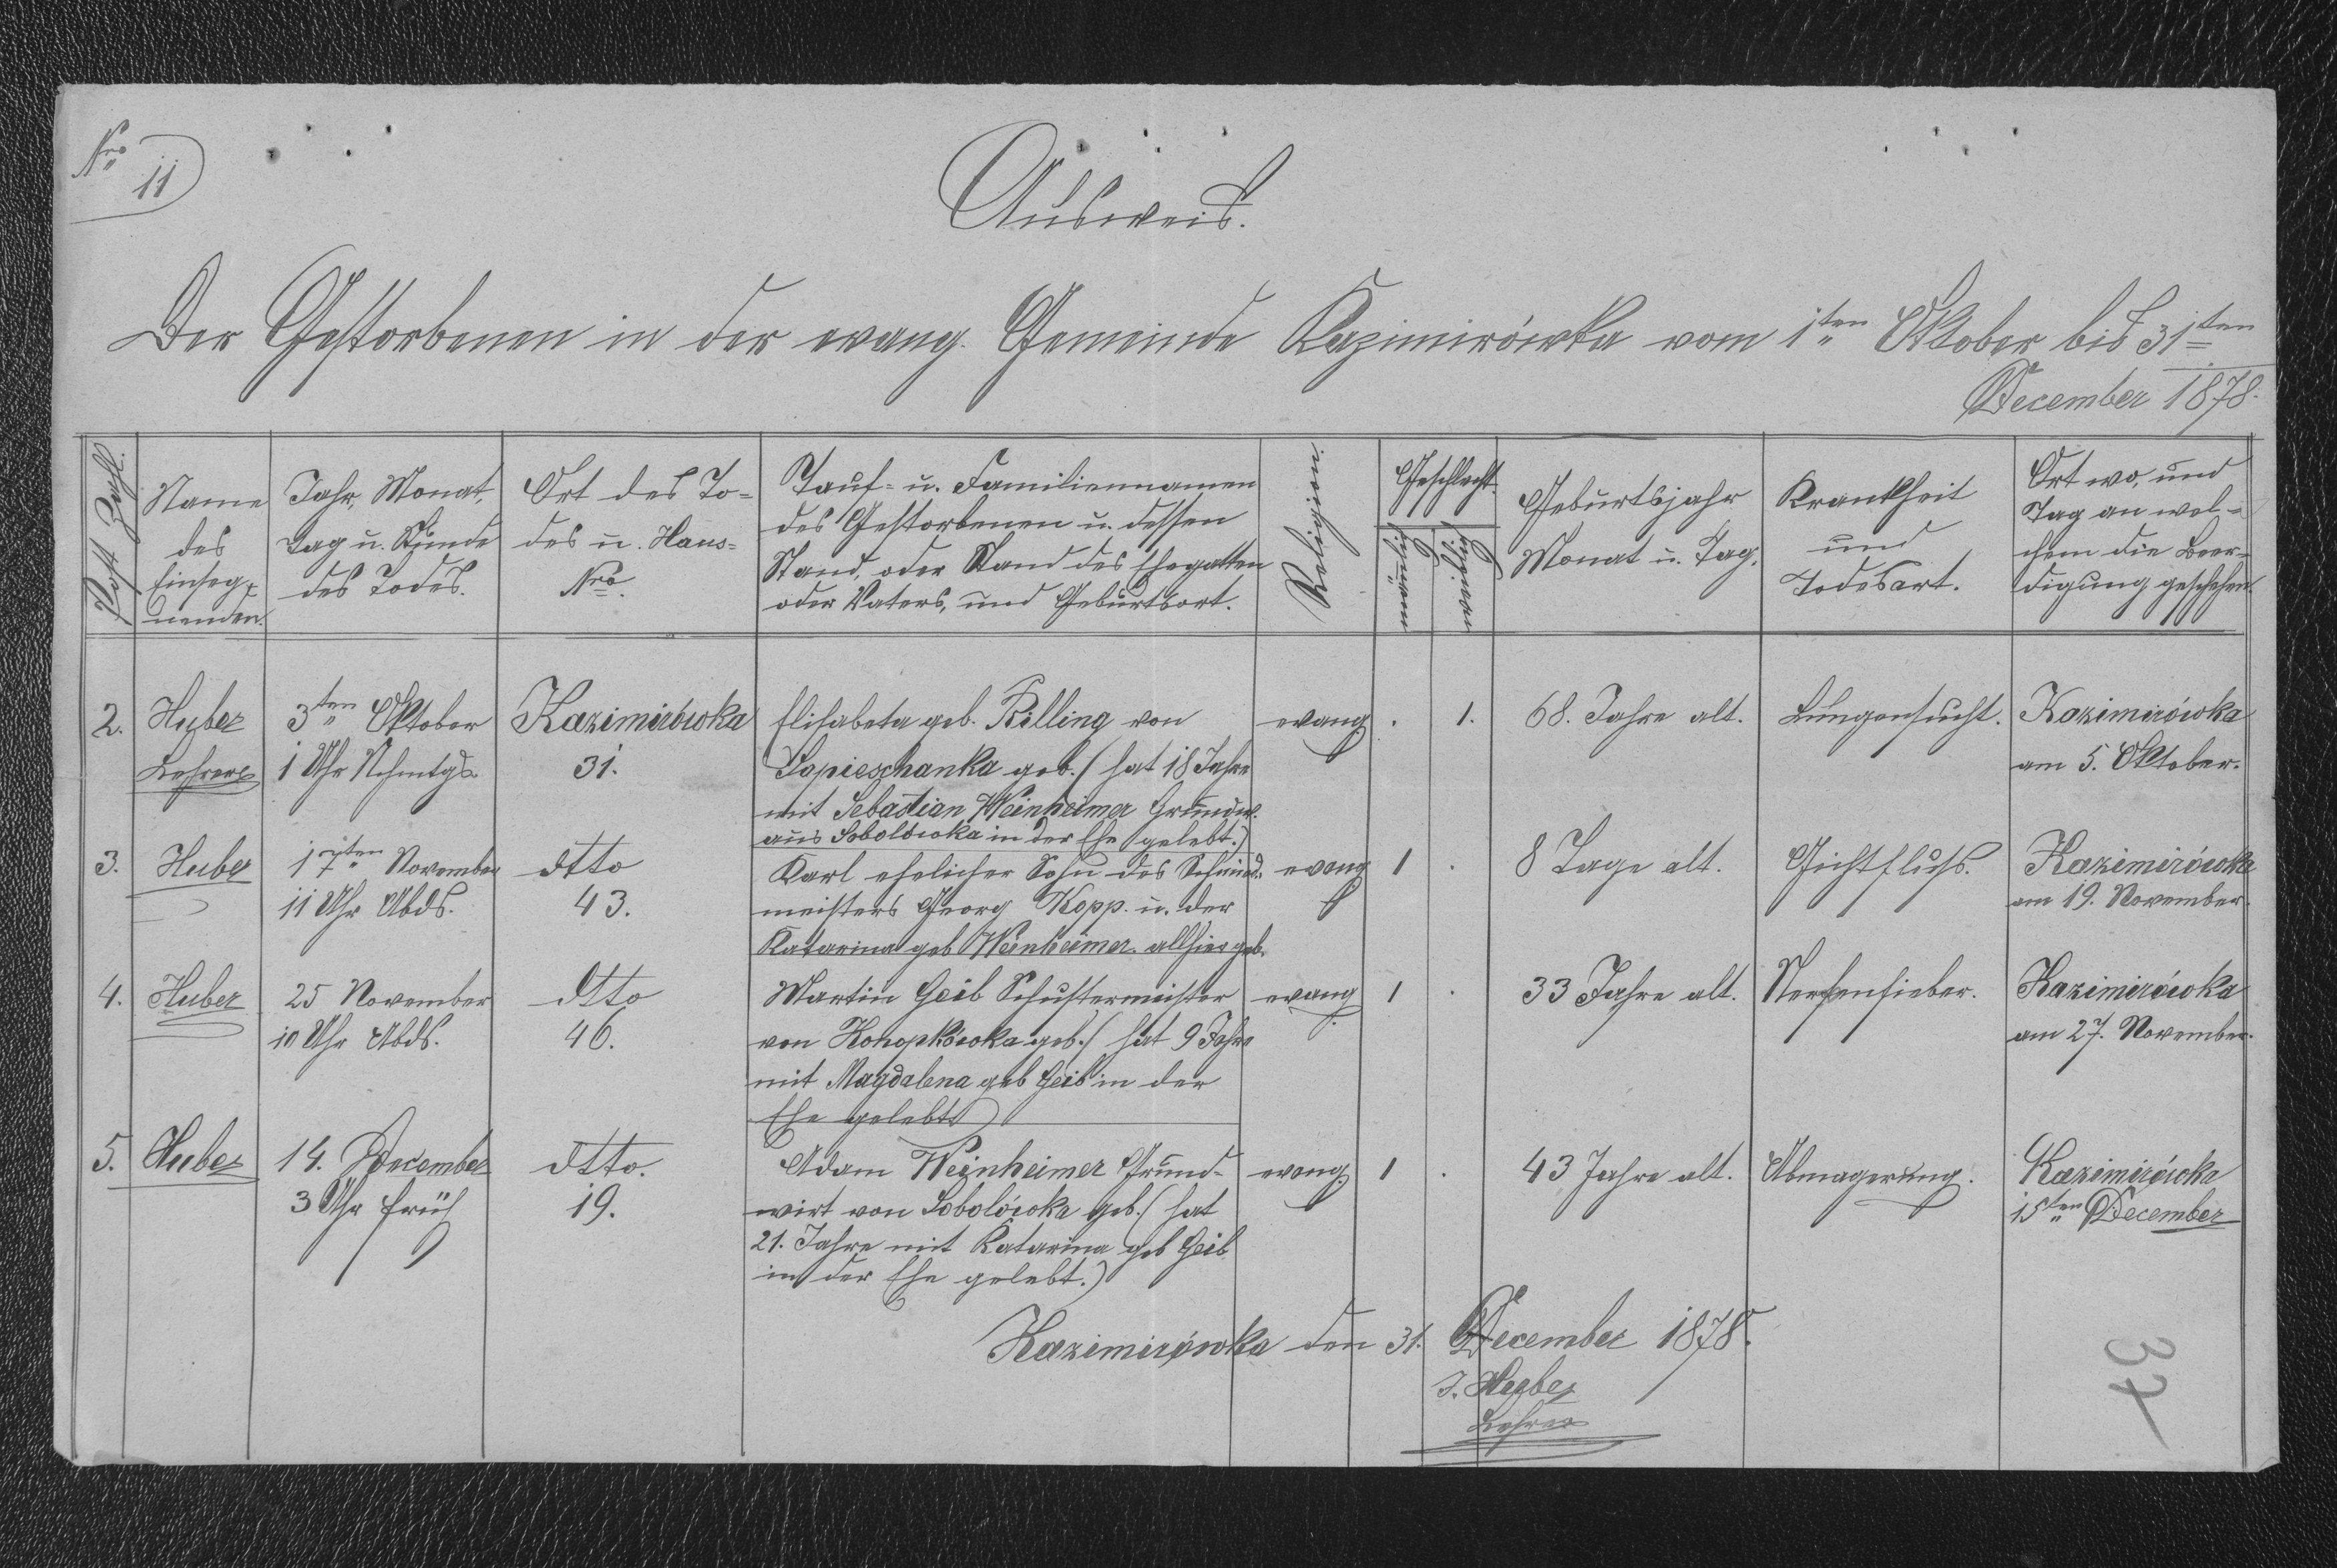 Nro 11
Ausweis.
Der Gestorbenen in der evang. Gemeinde Kazimirówka vom 1ten Oktober bis 31ten
December 1878.
Post Zahl.
Name
des
Einseg-
nenden.
Jahr, Monat,
Tag u. Stunde
des Todes.
Ort des To-
des u. Haus-
Nro.
Tauf- u. Familiennamen
des Gestorbenen u. dessen
Stand, oder Stand des Ehegatten
oder Vaters, und Geburtsort.
Religion
Geschlecht.
männlich
weiblich
Geburtsjahr
Monat u. Tag.
Krankheit
und
Todesart.
Ort wo, und
Tag an wel-
chem die Beer-
digung geschehen.
2.
Huber
Lehrer
3ten Oktober
1 Uhr Nchmtgs.
Kazimirówka
31.
Elisabeta geb. Rilling von
Sapieschanka geb. (hat 18 Jahre
mit Sebastian Weinheimer Grundw.
aus Sobolówka in der Ehe gelebt.)
evang
.
1.
68. Jahre alt.
Lungensucht.
Kazimirówka
am 5. Oktober.
3.
Huber
17ten November
11 Uhr Abds.
dtto
43.
Karl ehelicher Sohn des Schmied-
meisters Georg Kopp. u. der
Katarina geb Weinheimer. allhier geb.
evang
1
.
8 Tage alt.
Gichtfluss.
Kazimirówka
am 19. November.
4.
Huber
25 November
10 Uhr Abds.
dtto
46.
Martin Geib Schustermeister
von Konopkówka geb. (hat 9 Jahre
mit Magdalena geb Geib in der
Ehe gelebt)
evang
1
.
33 Jahre alt.
Nervenfieber.
Kazimirówka
am 27. November.
5.
Huber
14. December
3 Uhr früh
dtto.
19.
Adam Weinheimer Grund-
wirt von Sobolówka geb. (hat
21. Jahre mit Katarina geb Geib
in der Ehe gelebt.)
evang.
1
.
43 Jahre alt.
Abmagerung.
Kazimirówka
15ten December
Kazimirówka den 31. December 1878.
Lehrer
37